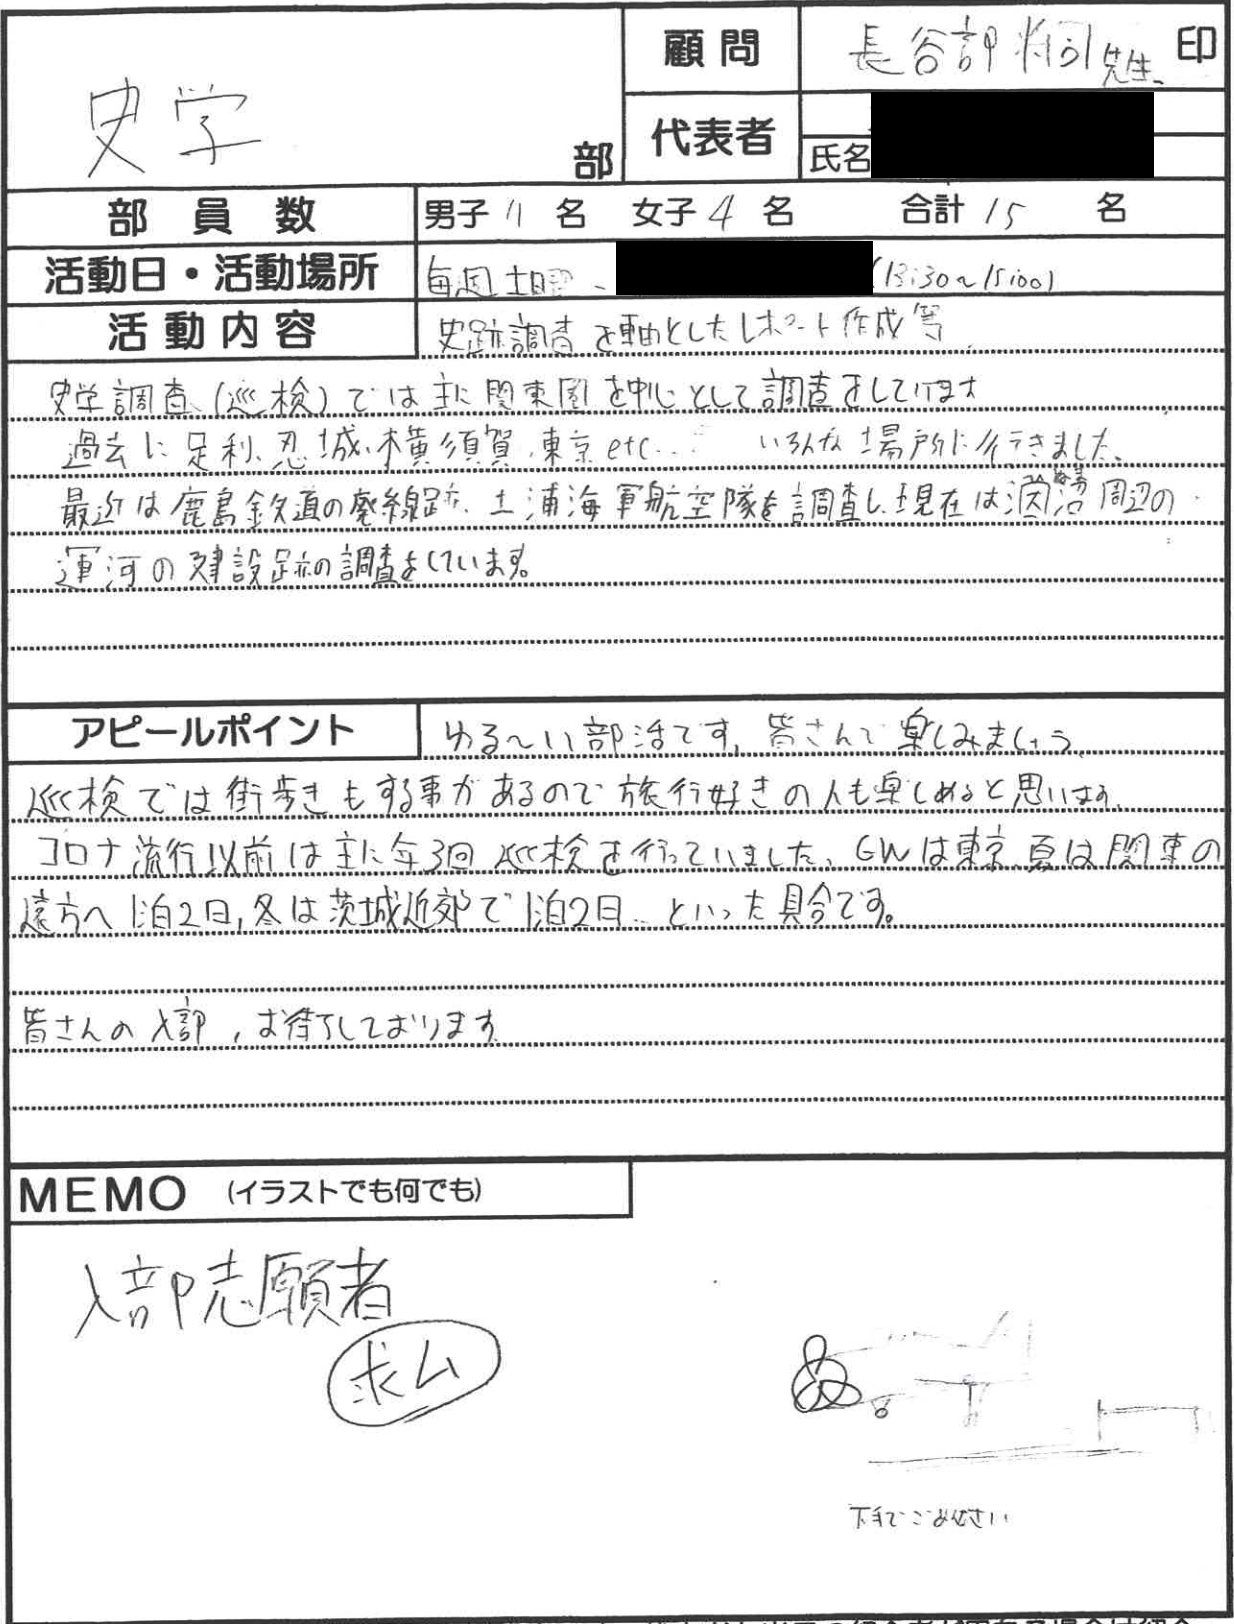 史学 部
顧問 長谷部将司先生 印
代表者
氏名
部員数 男子11名 女子4名 合計15名
活動日・活動場所 毎週土曜、 (13:30~15:00)
活動内容 史跡調査を軸としたレポート作成等
史学調査(巡検)では主に関東圏を中心として調査をしています
過去に足利、忍城、横須賀、東京etc... いろんな場所に行きました。
最近は鹿島鉄道の廃線跡、土浦海軍航空隊を調査し、現在は涸沼周辺の
運河の建設跡の調査をしています。
アピールポイント ゆる~い部活です。皆さんで楽しみましょう。
巡検では街歩きもする事があるので旅行好きの人も楽しめると思います。
コロナ流行以前は主に年3回巡検を行っていました。GWは東京、夏は関東の
遠方へ1泊2日,冬は茨城近郊で1泊2日...といった具合です。
皆さんの入部,お待ちしております
MEMO (イラストでも何でも)
入部志願者
求ム
下手でごめなさい